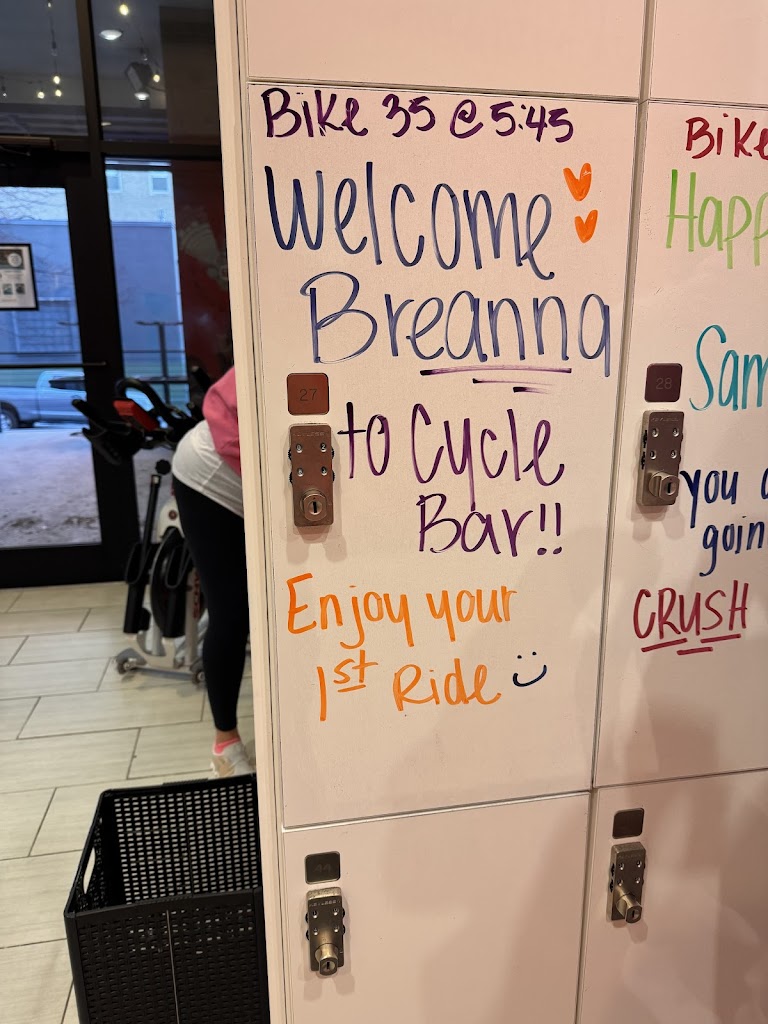 Bike 35 @ 5:45
Welcome
Breanna
to Cycle
Bar!!
Enjoy your
1st Ride
27
Bike
Happ
28
Sam
you
goin
CRUSH
44